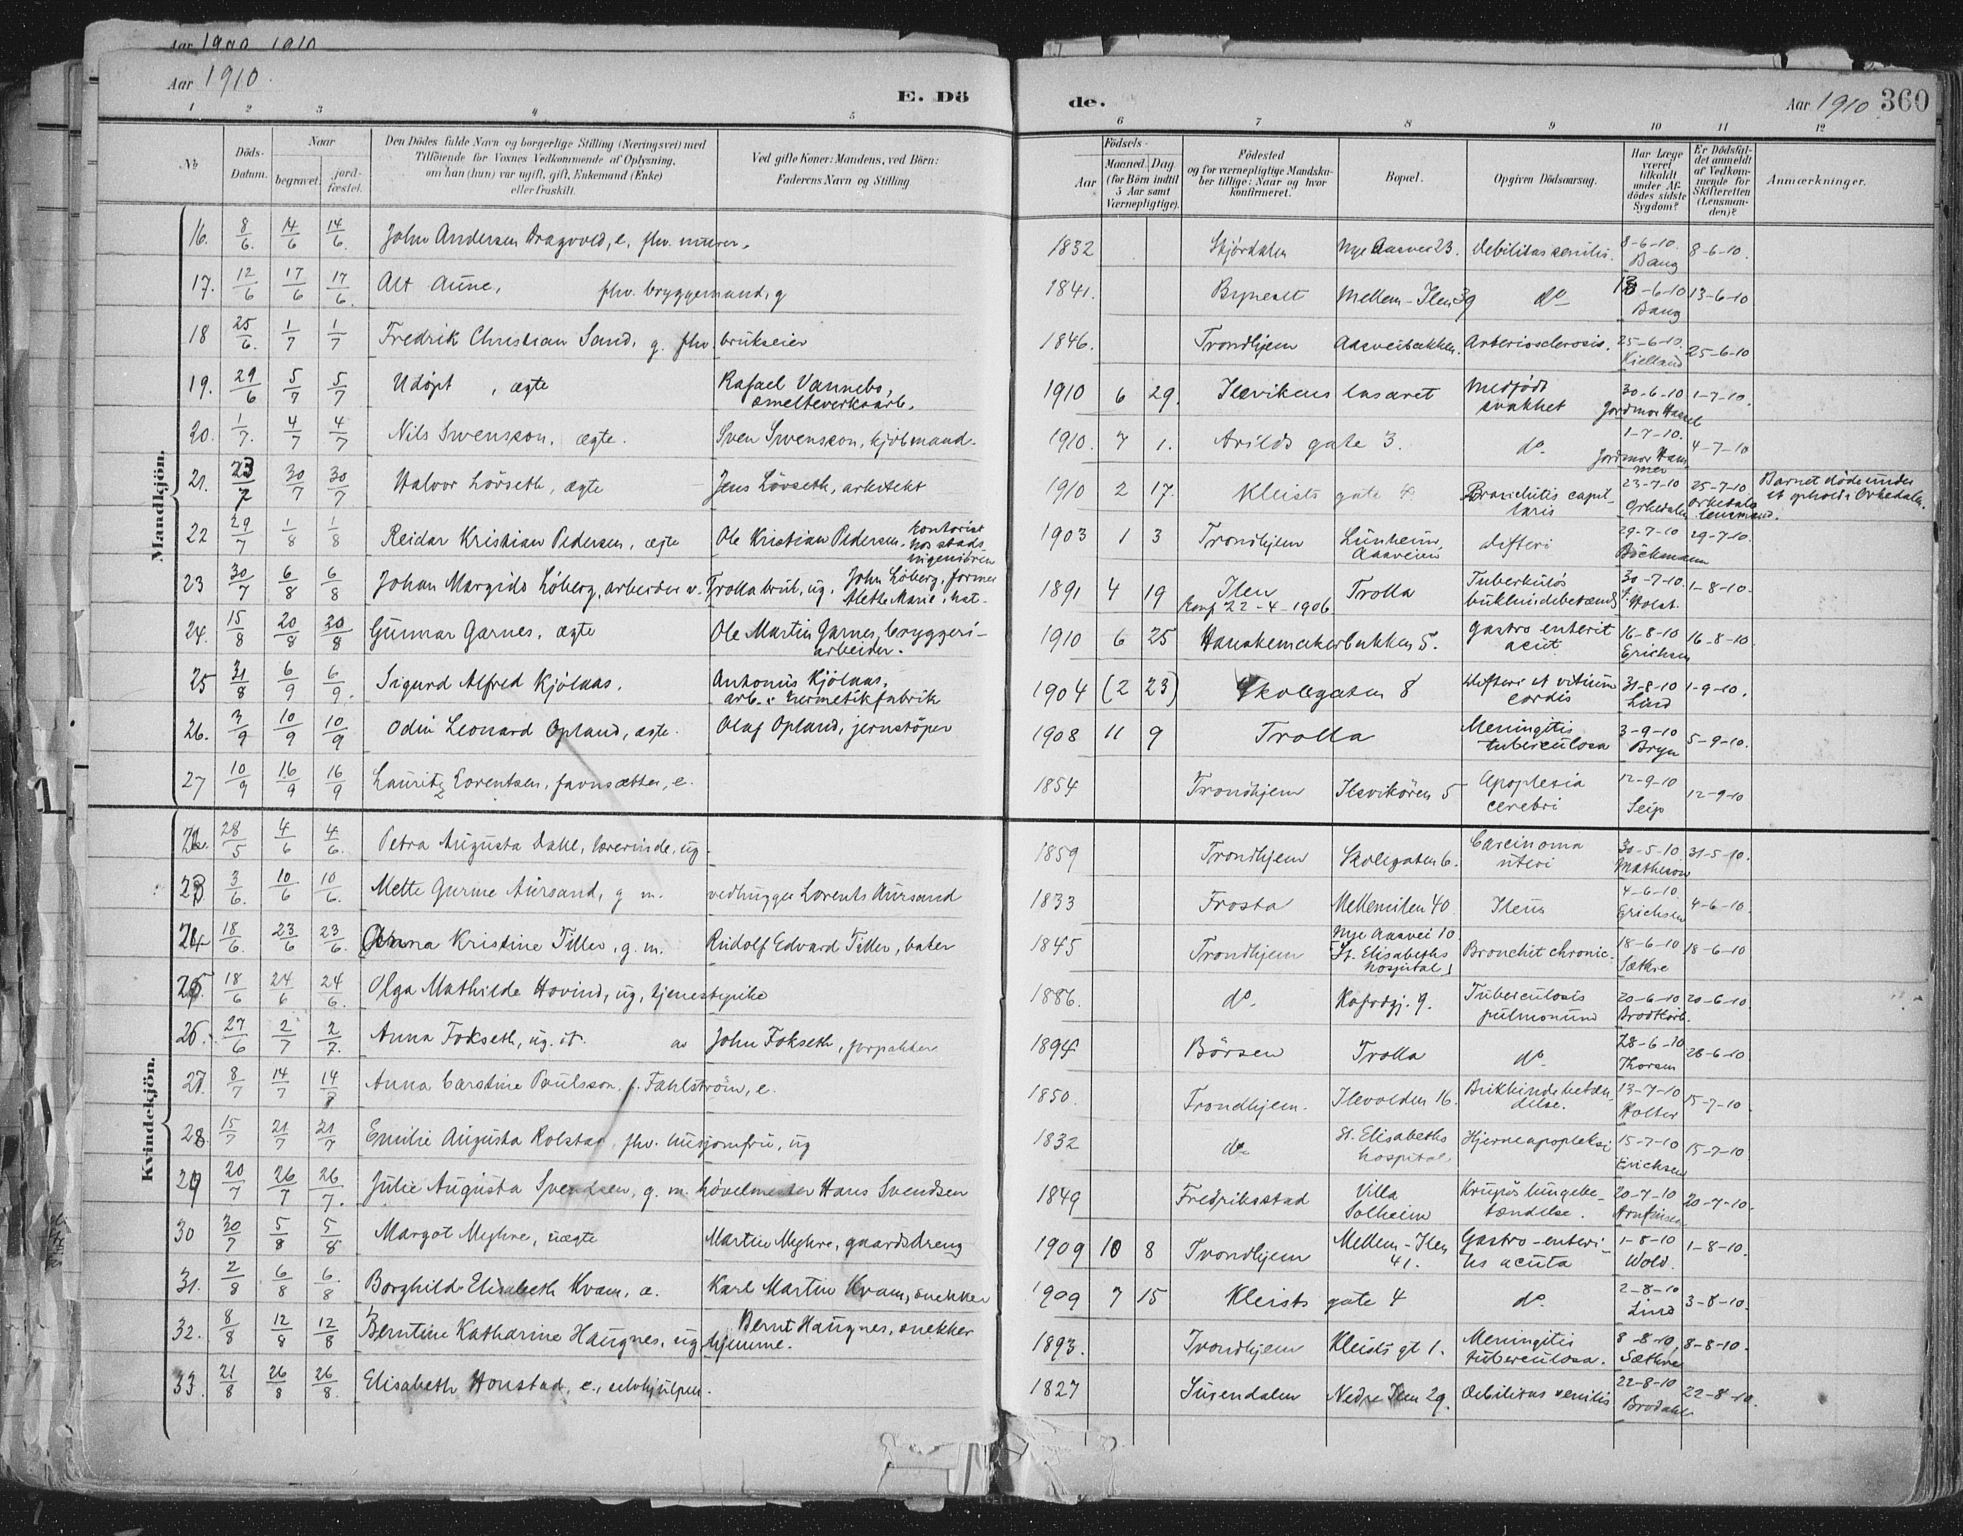 Aar 1910.
E. Dö
de.
Aar 1910 360
1 2 3 4 5 6 7 8 9 10 11 12
No
Döds-
Datum.
Naar
begravet.
jord-
fæstet.
Den Dödes fulde Navn og borgerlige Stilling (Næringsvei) med
Tilföiende for Voxnes Vedkommende af Oplysning,
om han (hun) var ugift, gift, Enkemand (Enke)
eller fraskilt.
Ved gifte Koner: Mandens, ved Börn:
Faderens Navn og Stilling
Födsels-
Aar
Maaned. Dag
(for Börn indtil
5 Aar samt
Værnepligtige).
Födested
og for værnepligtige Mandska-
ber tillige: Naar og hvor
konfirmeret.
Bopæl.
Opgiven Dödsaarsag.
Har Læge
været
tilkaldt
under Af-
dödes sidste
Sygdom?
Er Dödsfal-
det anmeldt
af Vedkom-
mende for
Skifteretten
(Lensman-
den)?
Anmærkninger.
Mandkjön.
16. 8/6. 14/6 14/6. John Andersen Dragvold, e, fhv. murer. 1832 Stjördalen Nye Aasvei 23. debilitas senilis. 8-6-10. Bang 8-6-10.
17. 12/6 17/6 17/6. Alt Aune, fhv. bryggemand, g 1841. Byneset Mellem-Ilen 39 do 13-6-10 Bang 13-6-10
18 25/6. 1/7 1/7 Fredrik Christian Sand, g. fhv brukseier 1846. Trondhjem Aasveibakken. Arteriosclerosis. 25-6-10. Kielland 25-6-10
19. 29/6 5/7 5/7 Udöpt, ægte Rafael Vannebo, smelteverksarb. 1910 6 29. Ilevikens lasaret Medfödt svakhet 30-6-10 Jordmor 1-7-10.
20. 1/7. 4/7 4/7 Nils Swensson, ægte. Sven Swensson, kjöbmand. 1910. 7 1. Arilds gate 3. do. 1-7-10. Jordmor Hammer 4-7-10
21. 23/7 30/7 30/7 Halvor Lövseth, ægte Jens Lövseth, arkitekt 1910 2 17. Kleists gate 8 Bronchitis capillaris 23-7-10 Orkedalen 25-7-10. Orkedals lensmand. Barnet döde under et ophold i Orkedalen.
22 29/7 1/8 1/8 Reidar Kristian Pedersen, ægte Ole Kristian Pedersen, kontorist hos stads ingeniören 1903 1 3 Trondhjem Lunheim, Aasveien difteri 29-7-10 Böckmann 29-7-10.
23 30/7 6/8 6/8 Johan Margido Löberg, arbeider v. Trolla bruk, ug. John Löberg, former Alette Marie, 1891 4 19 Ilen Konf 22-4-1906 Trolla Tuberkulös bukhindebetænd. 30-7-10. Holst. 1-8-10.
24. 15/8 20/8 20/8 Gunnar Garnes, ægte Ole Martin Garnes, bryggeri-arbeider. 1910 6 25 Hanskemakerbakken 5. gastro enterit acut. 16-8-10 Erichsen 16-8-10.
25 31/8 6/9 6/9. Sigurd Alfred Kjölaas. Antonius Kjölaas, arb. i hermetikfabrik 1904 (2 23) Skolegaten 8 Difteri et vitium cordis 31-8-10 Lind 1-9-10.
26. 3/9 10/9 10/9 Odin Leonard Opland, ægte. Olaf Opland, jernstöper 1908 11 9 Trolla Meningitis tuberculosa 3-9-10 Bryn 5-9-10.
27 10/9 16/9 16/9 Lauritz Lorentsen, favnsætter, e. 1854 Trondhjem Ilsvikören 5 Apoplexia cerebri 12-9-10 Seip 12-9-10
Kvindekjön.
22. 28/5 4/6 4/6. Petra Augusta Dahl, lærerinde, ug. 1859 Trondhjem Skolegaten 6. Carcinoma uteri 30-5-10. Matheson 31-5-10.
23 3/6. 10/6 10/6. Mette Gurine Aursand, g m. vedhugger Lorents Aursand 1833 Frosta Mellemilen 40 Ileus 4-6-10. Erichsen 4-6-10.
24 18/6. 23/6 23/6. Anna Kristine Tiller, g. m. Rudolf Edvard Tiller, bater 1845 Trondhjem Nye Aasvei 10. (St. Elisabeths hospital) Bronchit chronic. 18-6-10 Sæthre 18-6-10
25. 18/6 24/6 24/6. Olga Mathilde Hovind, ug, tjenestepike 1886. do. 9. Tuberculosis pulmonum 20-6-10 20-6-10.
26. 27/6 2/7 2/7. Anna Fokseth, ug. av John Fokseth, 1894 Börsen Trolla do. 28-6-10 Thorsen 28-6-10
27. 8/7 14/7 14/7 Anna Carstine Poulsson, f. Fahlström, e. 1850. Trondhjem. Ilevolden 16. Bukhindebetændelse. 13-7-10 Holter 15-7-10
28. 15/7 21/7 21/7 Emilie Augusta Rolstad, fhv. husjomfru, ug 1832 do. St. Elisabeths hospital Hjerneapopleksi 15-7-10 Erichsen 15-7-10
29 20/7 26/7 26/7. Julie Augusta Svendsen, g. m. hövelmester Hans Svendsen 1849 Fredriksstad Villa Solheim Krupös lungebetændelse. 20-7-10 Arnfinsen 20-7-10.
30 30/7 5/8 5/8 Margot Myhre, uægte Martin Myhre, gaardsdreng 1909 10 8 Trondhjem Mellem-Ilen 41. Gastro-enteritis acuta 1-8-10 Wold. 1-8-10.
31. 2/8 6/8 6./8 Borghild Elisabeth Kvam, æ. Karl Martin Kvam, snekker 1909 7 15 Kleists gate 4 do. 2-8-10 Lind 3-8-10.
32. 8/8 12/8 12/8 Berntine Katharine Haugnes, ug hjemme. Bernt Haugnes, snekker 1893. Trondhjem Kleists gt 1. Meningitis tuberculosa. 8-8-10, Sæthre 8-8-10.
33. 21/8 26/8 26/8. Elisabeth Honstad, e., selvhjulpen. 1827 Surendalen Nedre Ilen 29. Debilitas senilis 22-8-10 Brodahl 22-8-10.